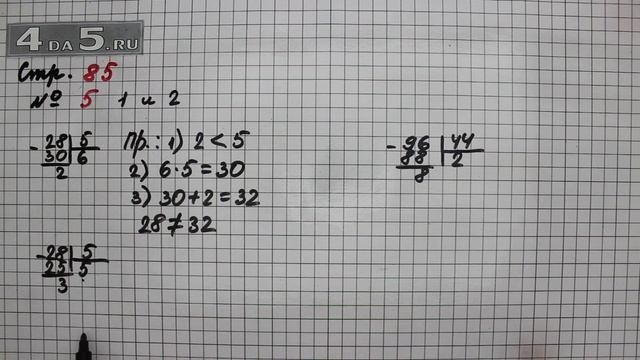 4DA5.RU
Стр. 85
№ 5 1 и 2
- 28 | 5
30 | 6
2
Пр.: 1) 2 < 5
2) 6·5 = 30
3) 30 + 2 = 32
28 ≠ 32
- 28 | 5
25 | 5
3
- 96 | 44
88 | 2
8